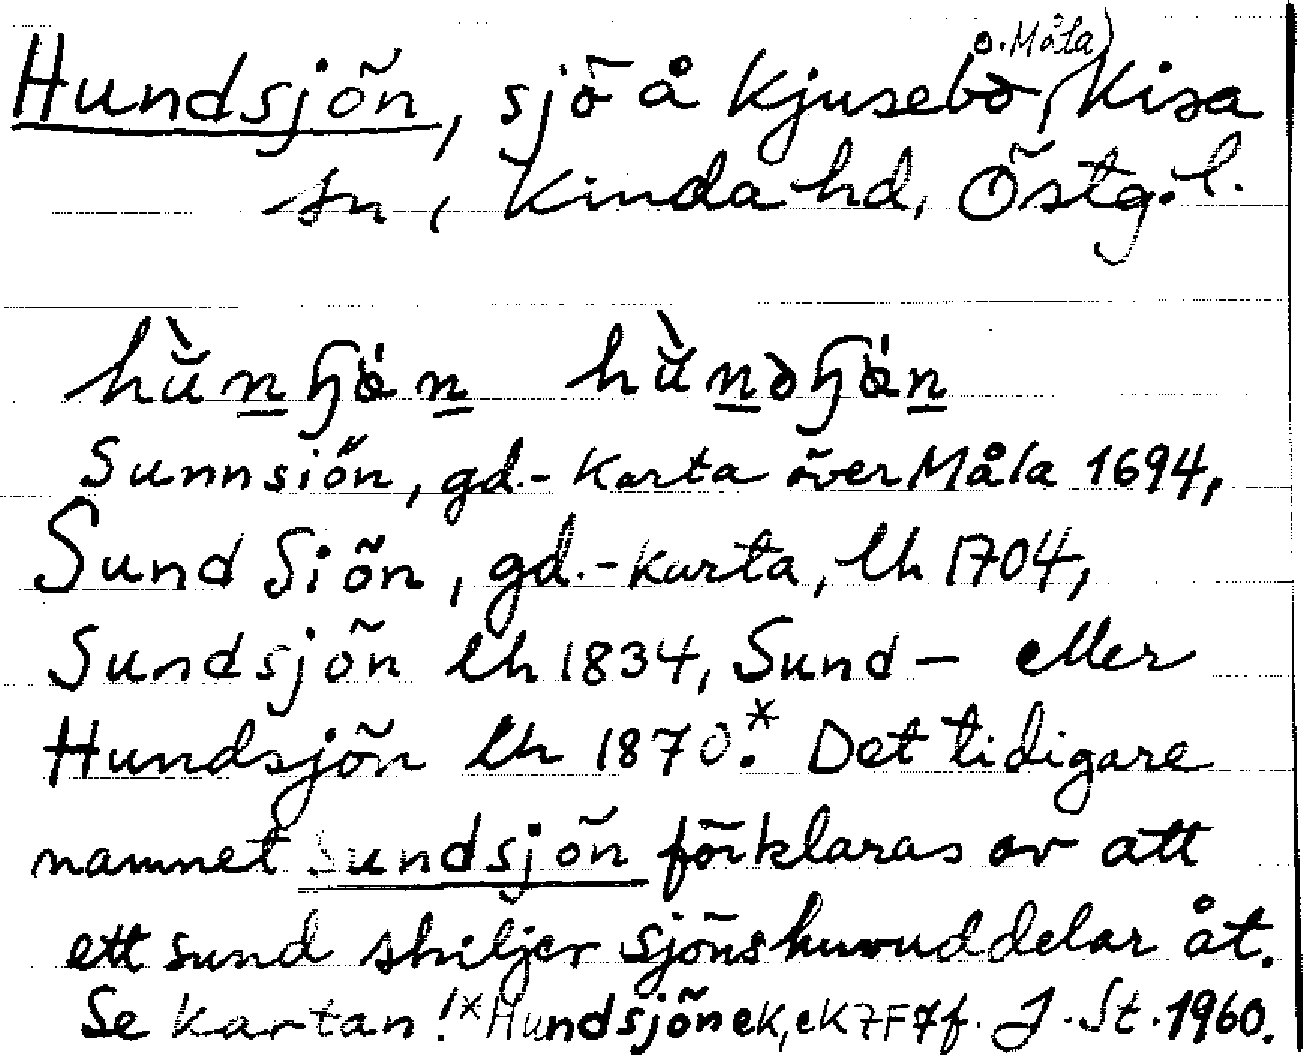 Hundsjön, sjö å Kjusebo (o. Måla), Kisa
sn, Kinda hd, Östg. l.
Sunnsiön, gd.-karta över Måla 1694,
Sund Siön, gd.-karta, lh 1704,
Sundsjön lh 1834, Sund- eller
Hundsjön lh 1870.* Det tidigare
namnet Sundsjön förklaras av att
ett sund skiljer sjöns huvuddelar åt.
Se kartan! *Hundsjön ek, ek 7F7f. J. St. 1960.